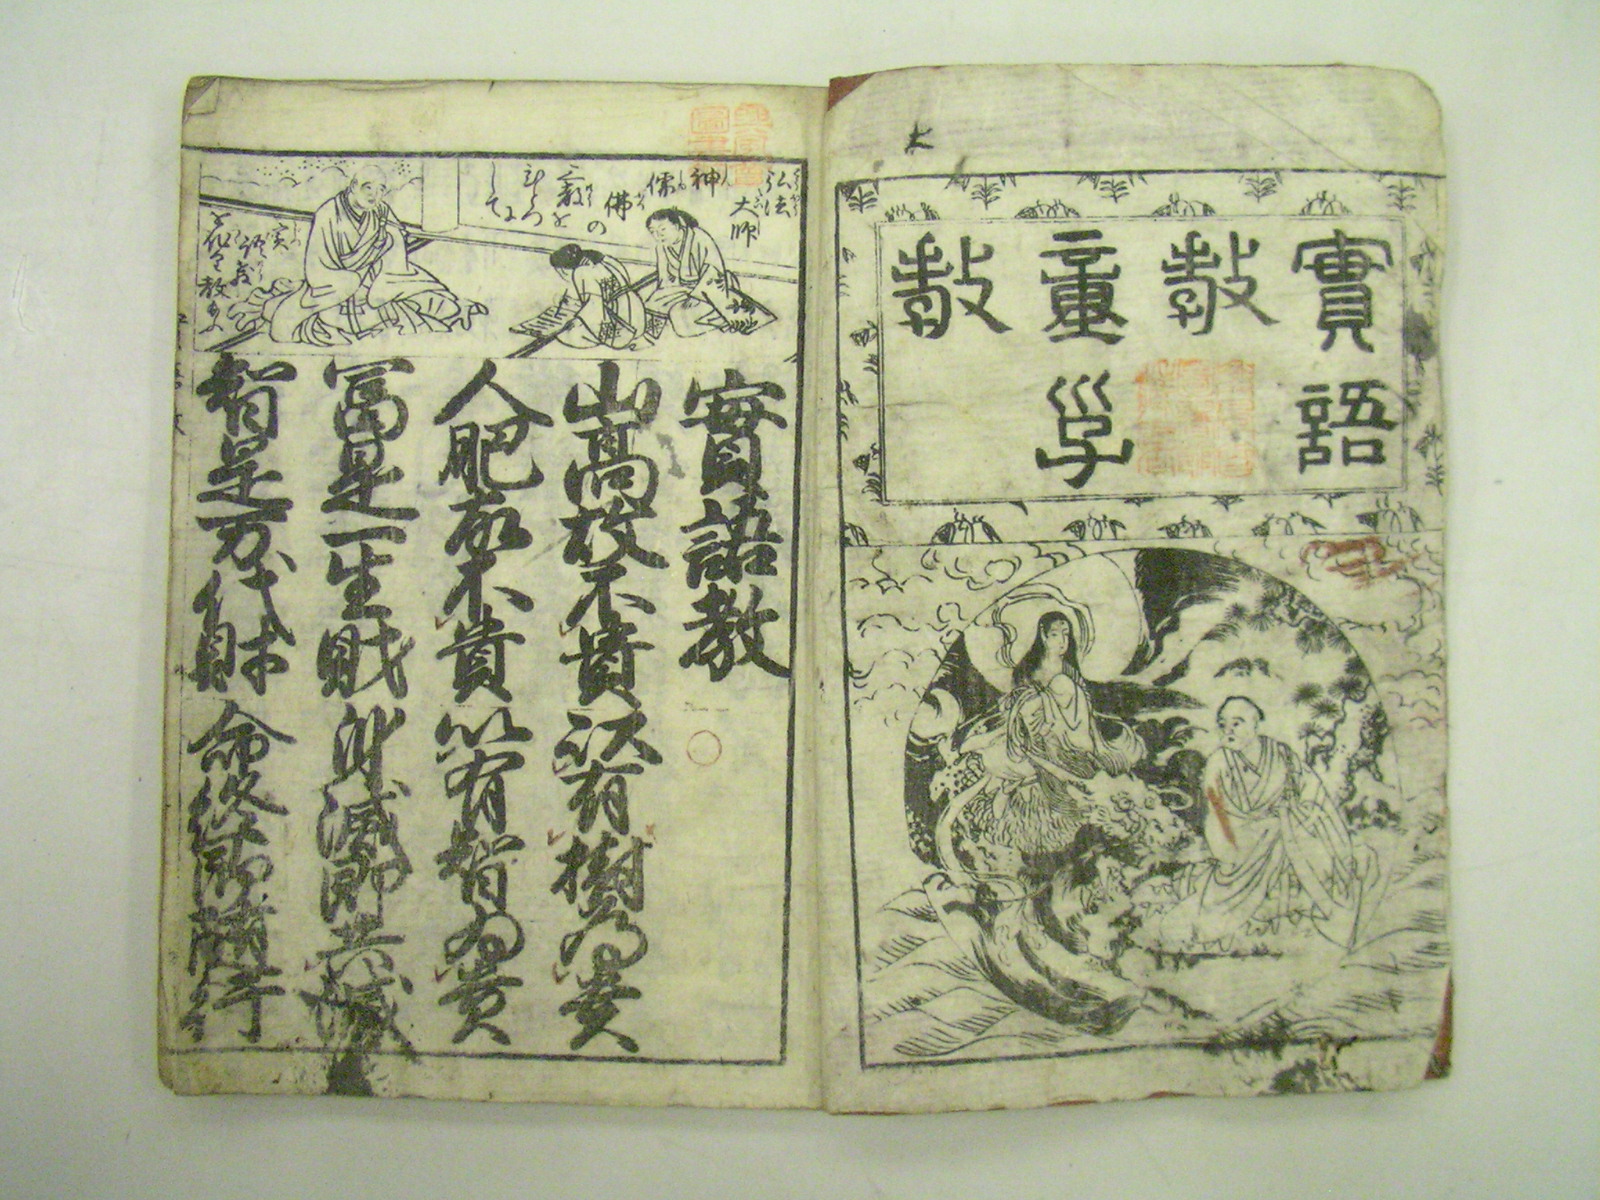 實語
教
童子
教
弘法
大師
神
儒
佛
の
三教を
ひとつ
にして
實語教
山高故不貴以有樹為貴
人肥故不貴以有智為貴
冨是一生財身滅即共滅
智是万代財命終即隨行